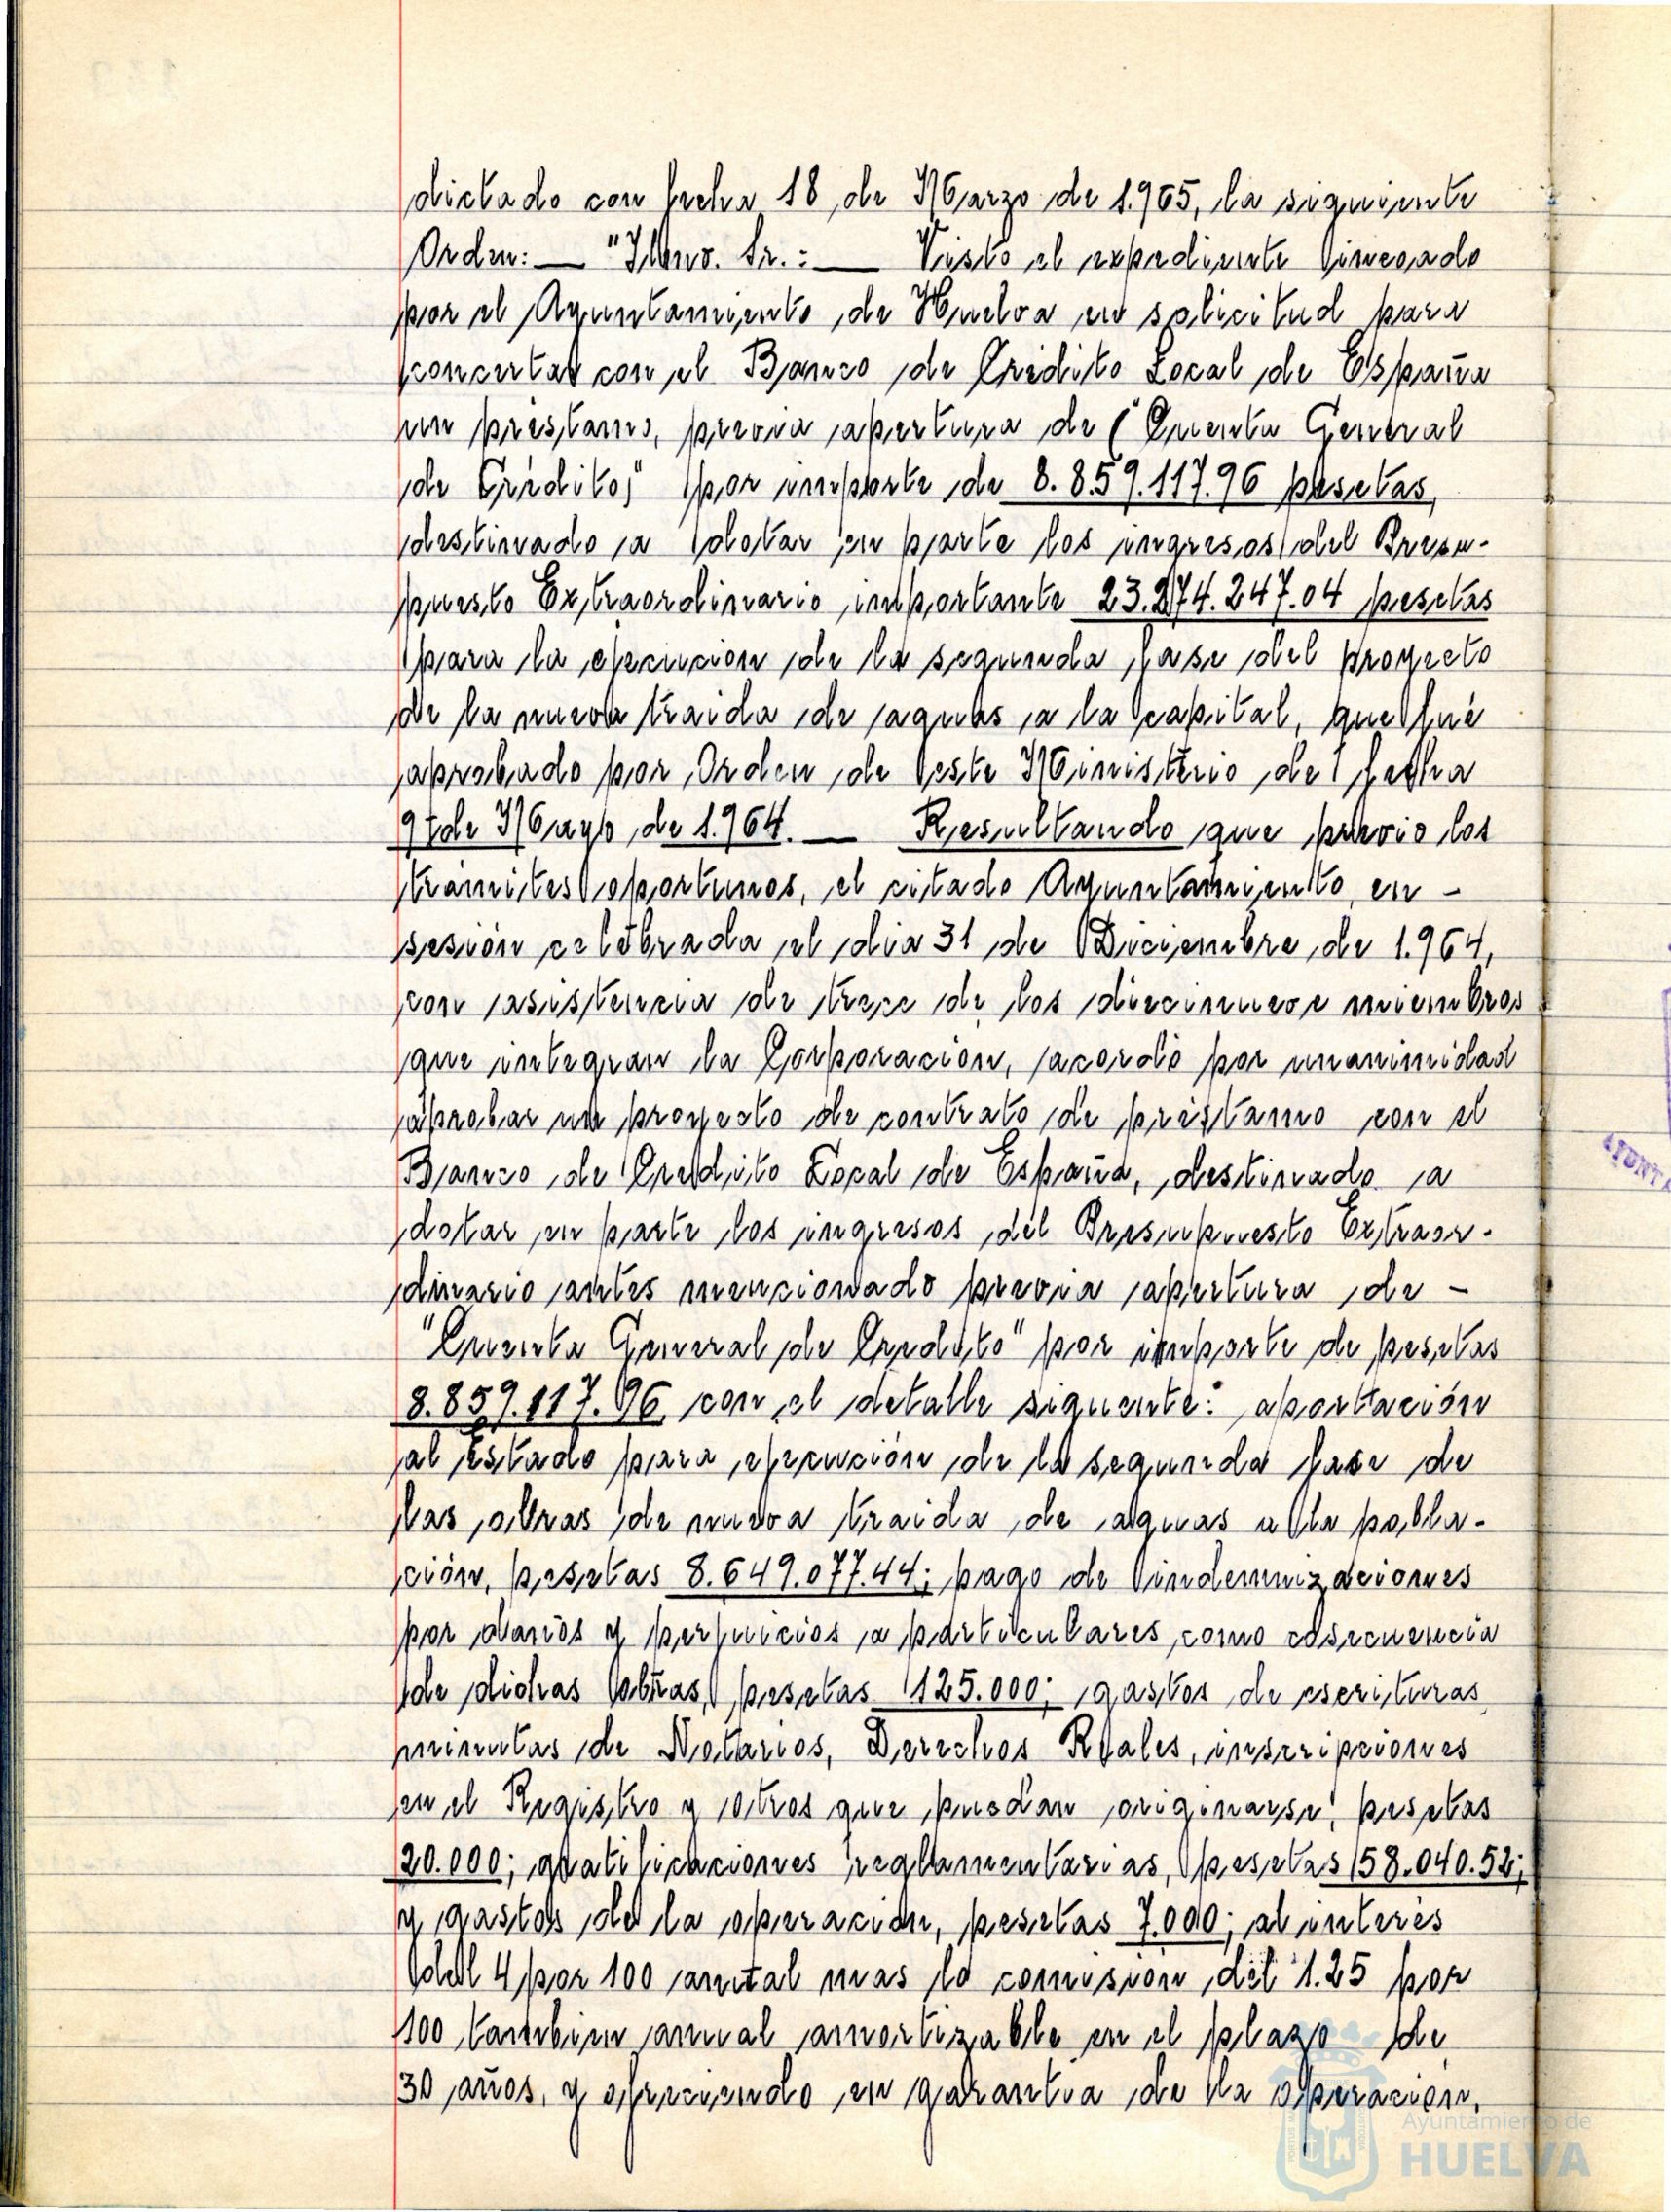 dictado con fecha 18 de Marzo de 1.965, la siguiente
Orden: — "Ilmo. Sr.: — Visto el expediente incoado
por el Ayuntamiento de Huelva en solicitud para
concertar con el Banco de Crédito Local de España
un préstamo, previa apertura de "Cuenta General
de Crédito" por importe de 8.859.117.96 pesetas,
destinado a dotar en parte los ingresos del Presu-
puesto Extraordinario importante 23.274.247.04 pesetas
para la ejecucion de la segunda fase del proyecto
de la nueva traida de aguas a la capital, que fué
aprobado por Orden de este Ministerio de fecha
9 de Mayo de 1.964. — Resultando que previo los
trámites oportunos, el citado Ayuntamiento, en -
sesión celebrada el dia 31 de Diciembre de 1.964,
con asistencia de trece de los diecinueve miembros
que integran la Corporación, acordó por unanimidad
aprobar un proyecto de contrato de préstamo con el
Banco de Credito Local de España, destinado a
dotar en parte los ingresos del Presupuesto Extraor-
dinario antes mencionado previa apertura de -
"Cuenta General de Credito" por importe de pesetas
8.859.117.96, con el detalle siguente: aportación
al Estado para ejecución de la segunda fase de
las obras de nueva traida de aguas a la pobla-
ción, pesetas 8.649.077.44; pago de indemnizaciones
por daños y perjuicios a particulares, como cosecuencia
de dichas obras, pesetas 125.000; gastos de escrituras
minutas de Notarios, Derechos Reales, inscripciones
en el Registro y otros que puedan originarse, pesetas
20.000; gratificaciones reglamentarias, pesetas 58.040.52;
y gastos de la operación, pesetas 7.000; al interés
del 4 por 100 anual mas la comision del 1.25 por
100 tambien anual amortizable en el plazo de
30 años, y ofreciendo en garantia de la operación,
AYUNTA
Ayuntamiento de
HUELVA